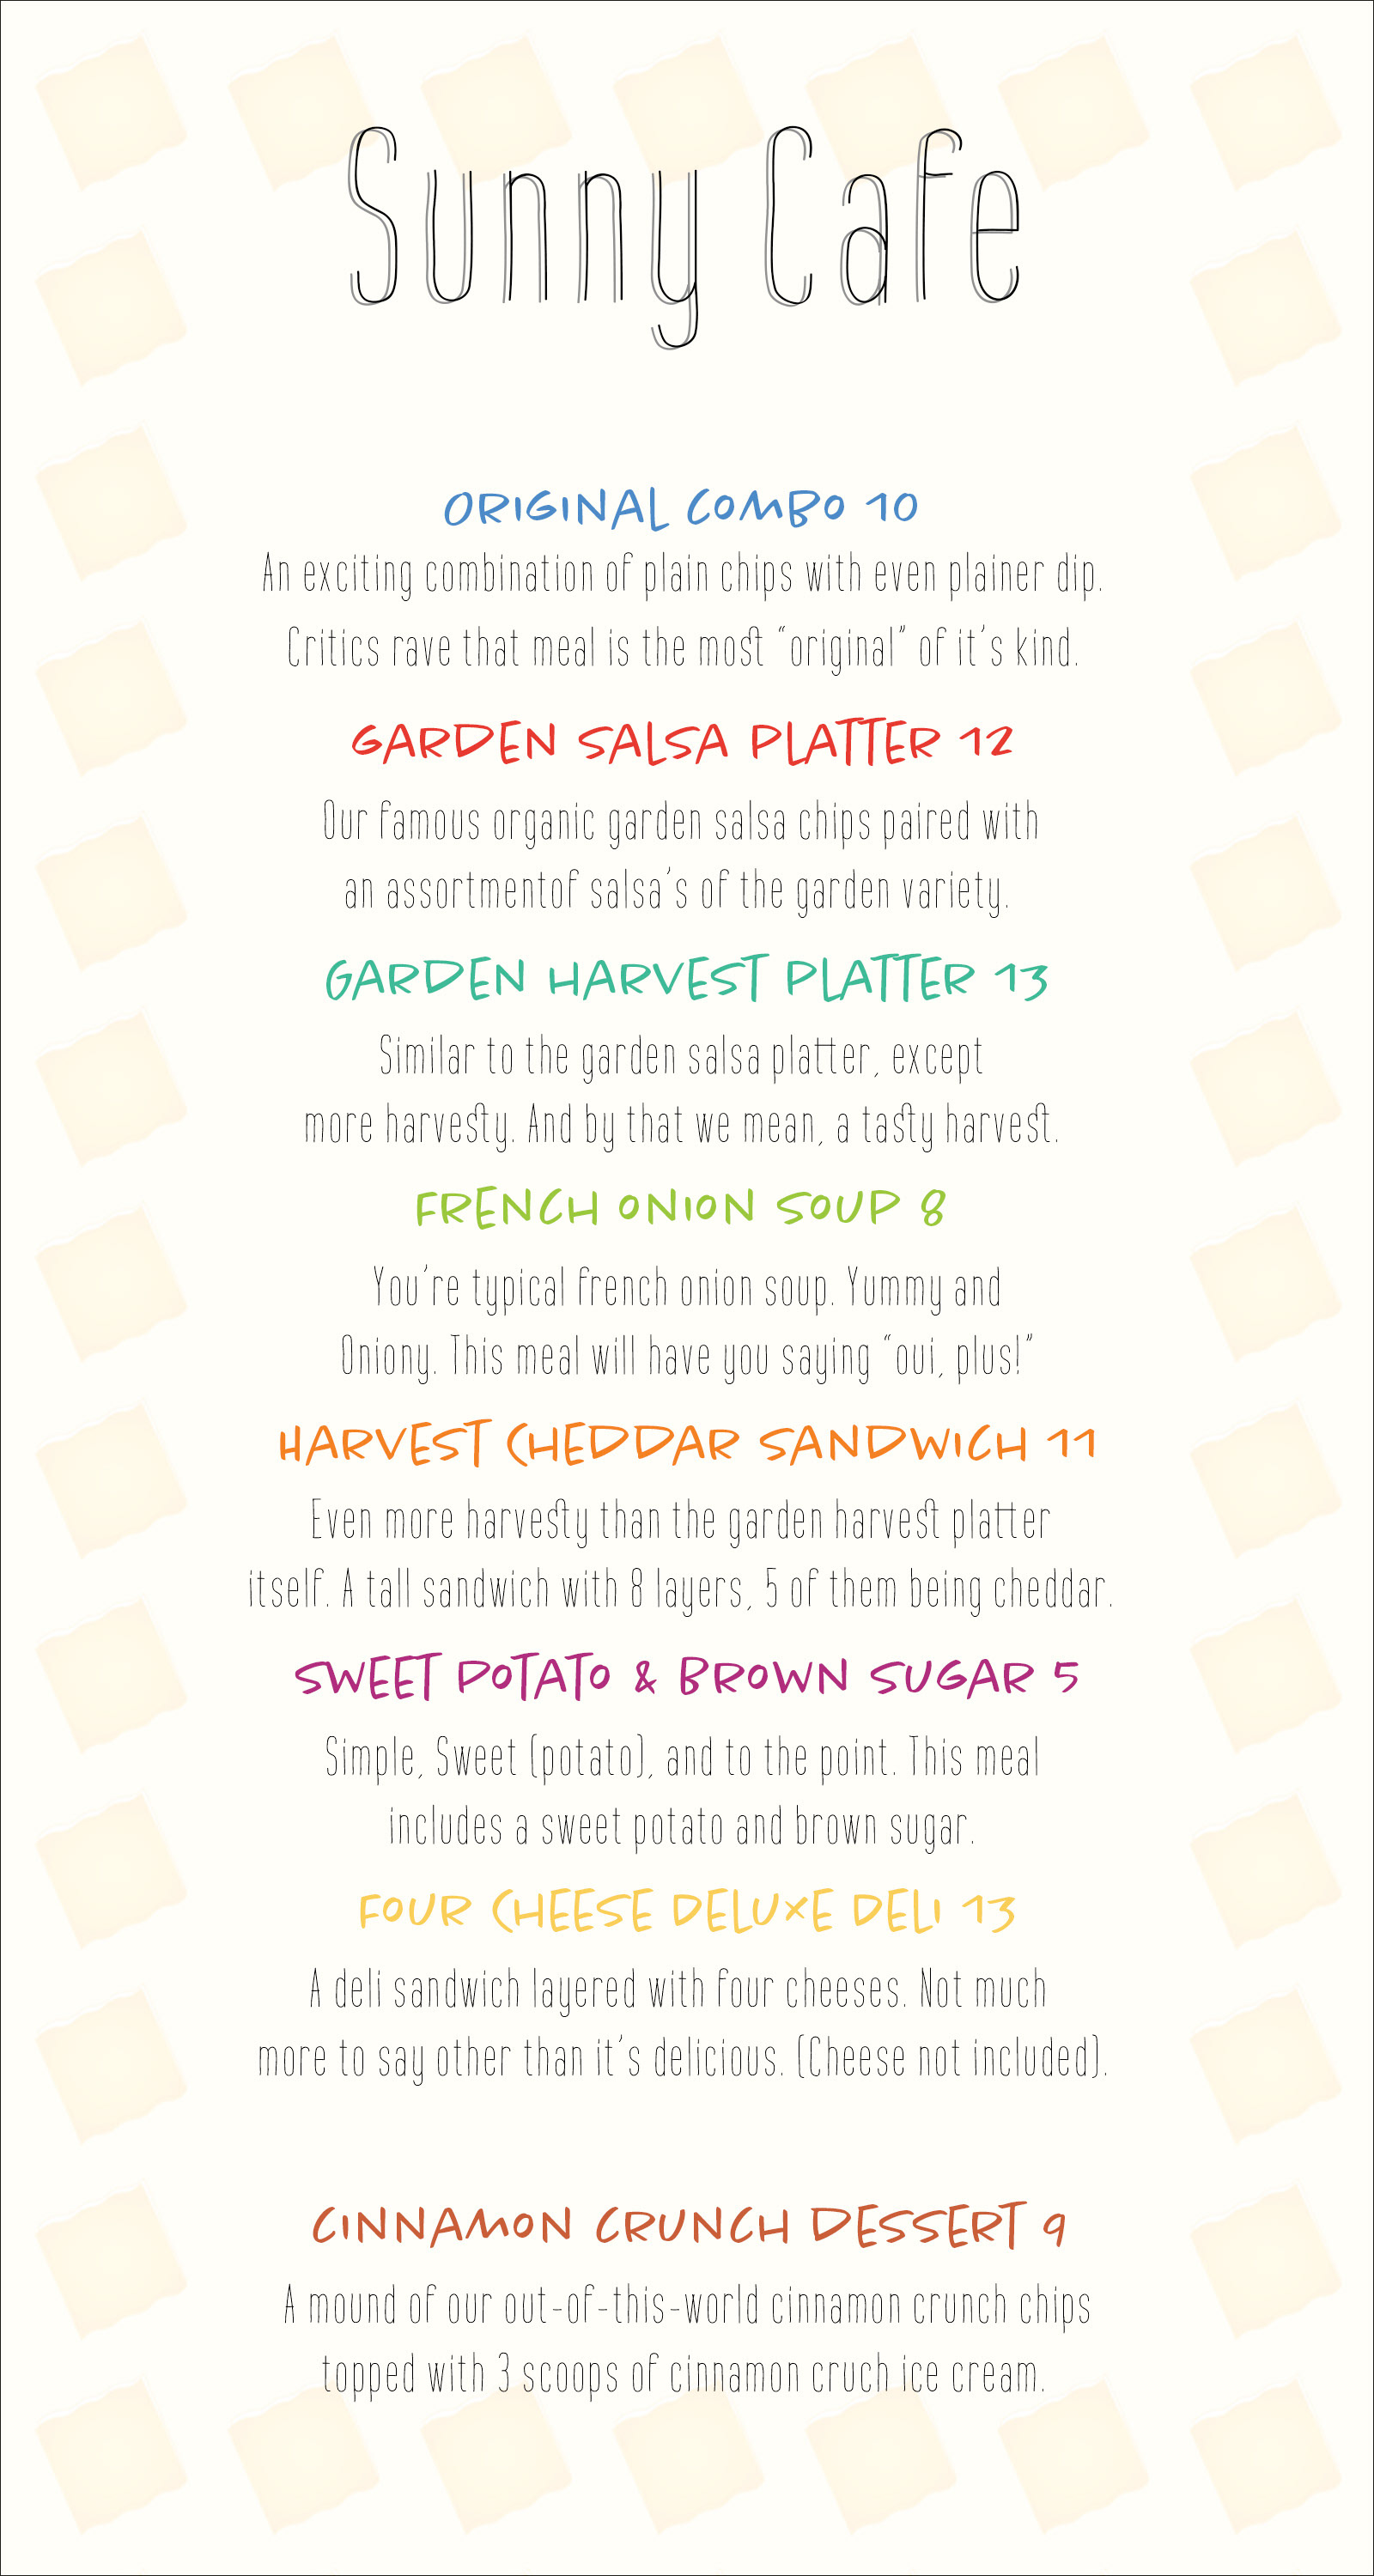 Sunny Cafe
ORIGINAL COMBO 10
An exciting combination of plain chips with even plainer dip.
Critics rave that meal is the most “original” of it’s kind.
GARDEN SALSA PLATTER 12
Our famous organic garden salsa chips paired with
an assortmentof salsa’s of the garden variety.
GARDEN HARVEST PLATTER 13
Similar to the garden salsa platter, except
more harvesty. And by that we mean, a tasty harvest.
FRENCH ONION SOUP 8
You’re typical french onion soup. Yummy and
Oniony. This meal will have you saying “oui, plus!”
HARVEST CHEDDAR SANDWICH 11
Even more harvesty than the garden harvest platter
itself. A tall sandwich with 8 layers, 5 of them being cheddar.
SWEET POTATO & BROWN SUGAR 5
Simple, Sweet (potato), and to the point. This meal
includes a sweet potato and brown sugar.
FOUR CHEESE DELUXE DELI 13
A deli sandwich layered with four cheeses. Not much
more to say other than it’s delicious. (Cheese not included).
CINNAMON CRUNCH DESSERT 9
A mound of our out-of-this-world cinnamon crunch chips
topped with 3 scoops of cinnamon cruch ice cream.